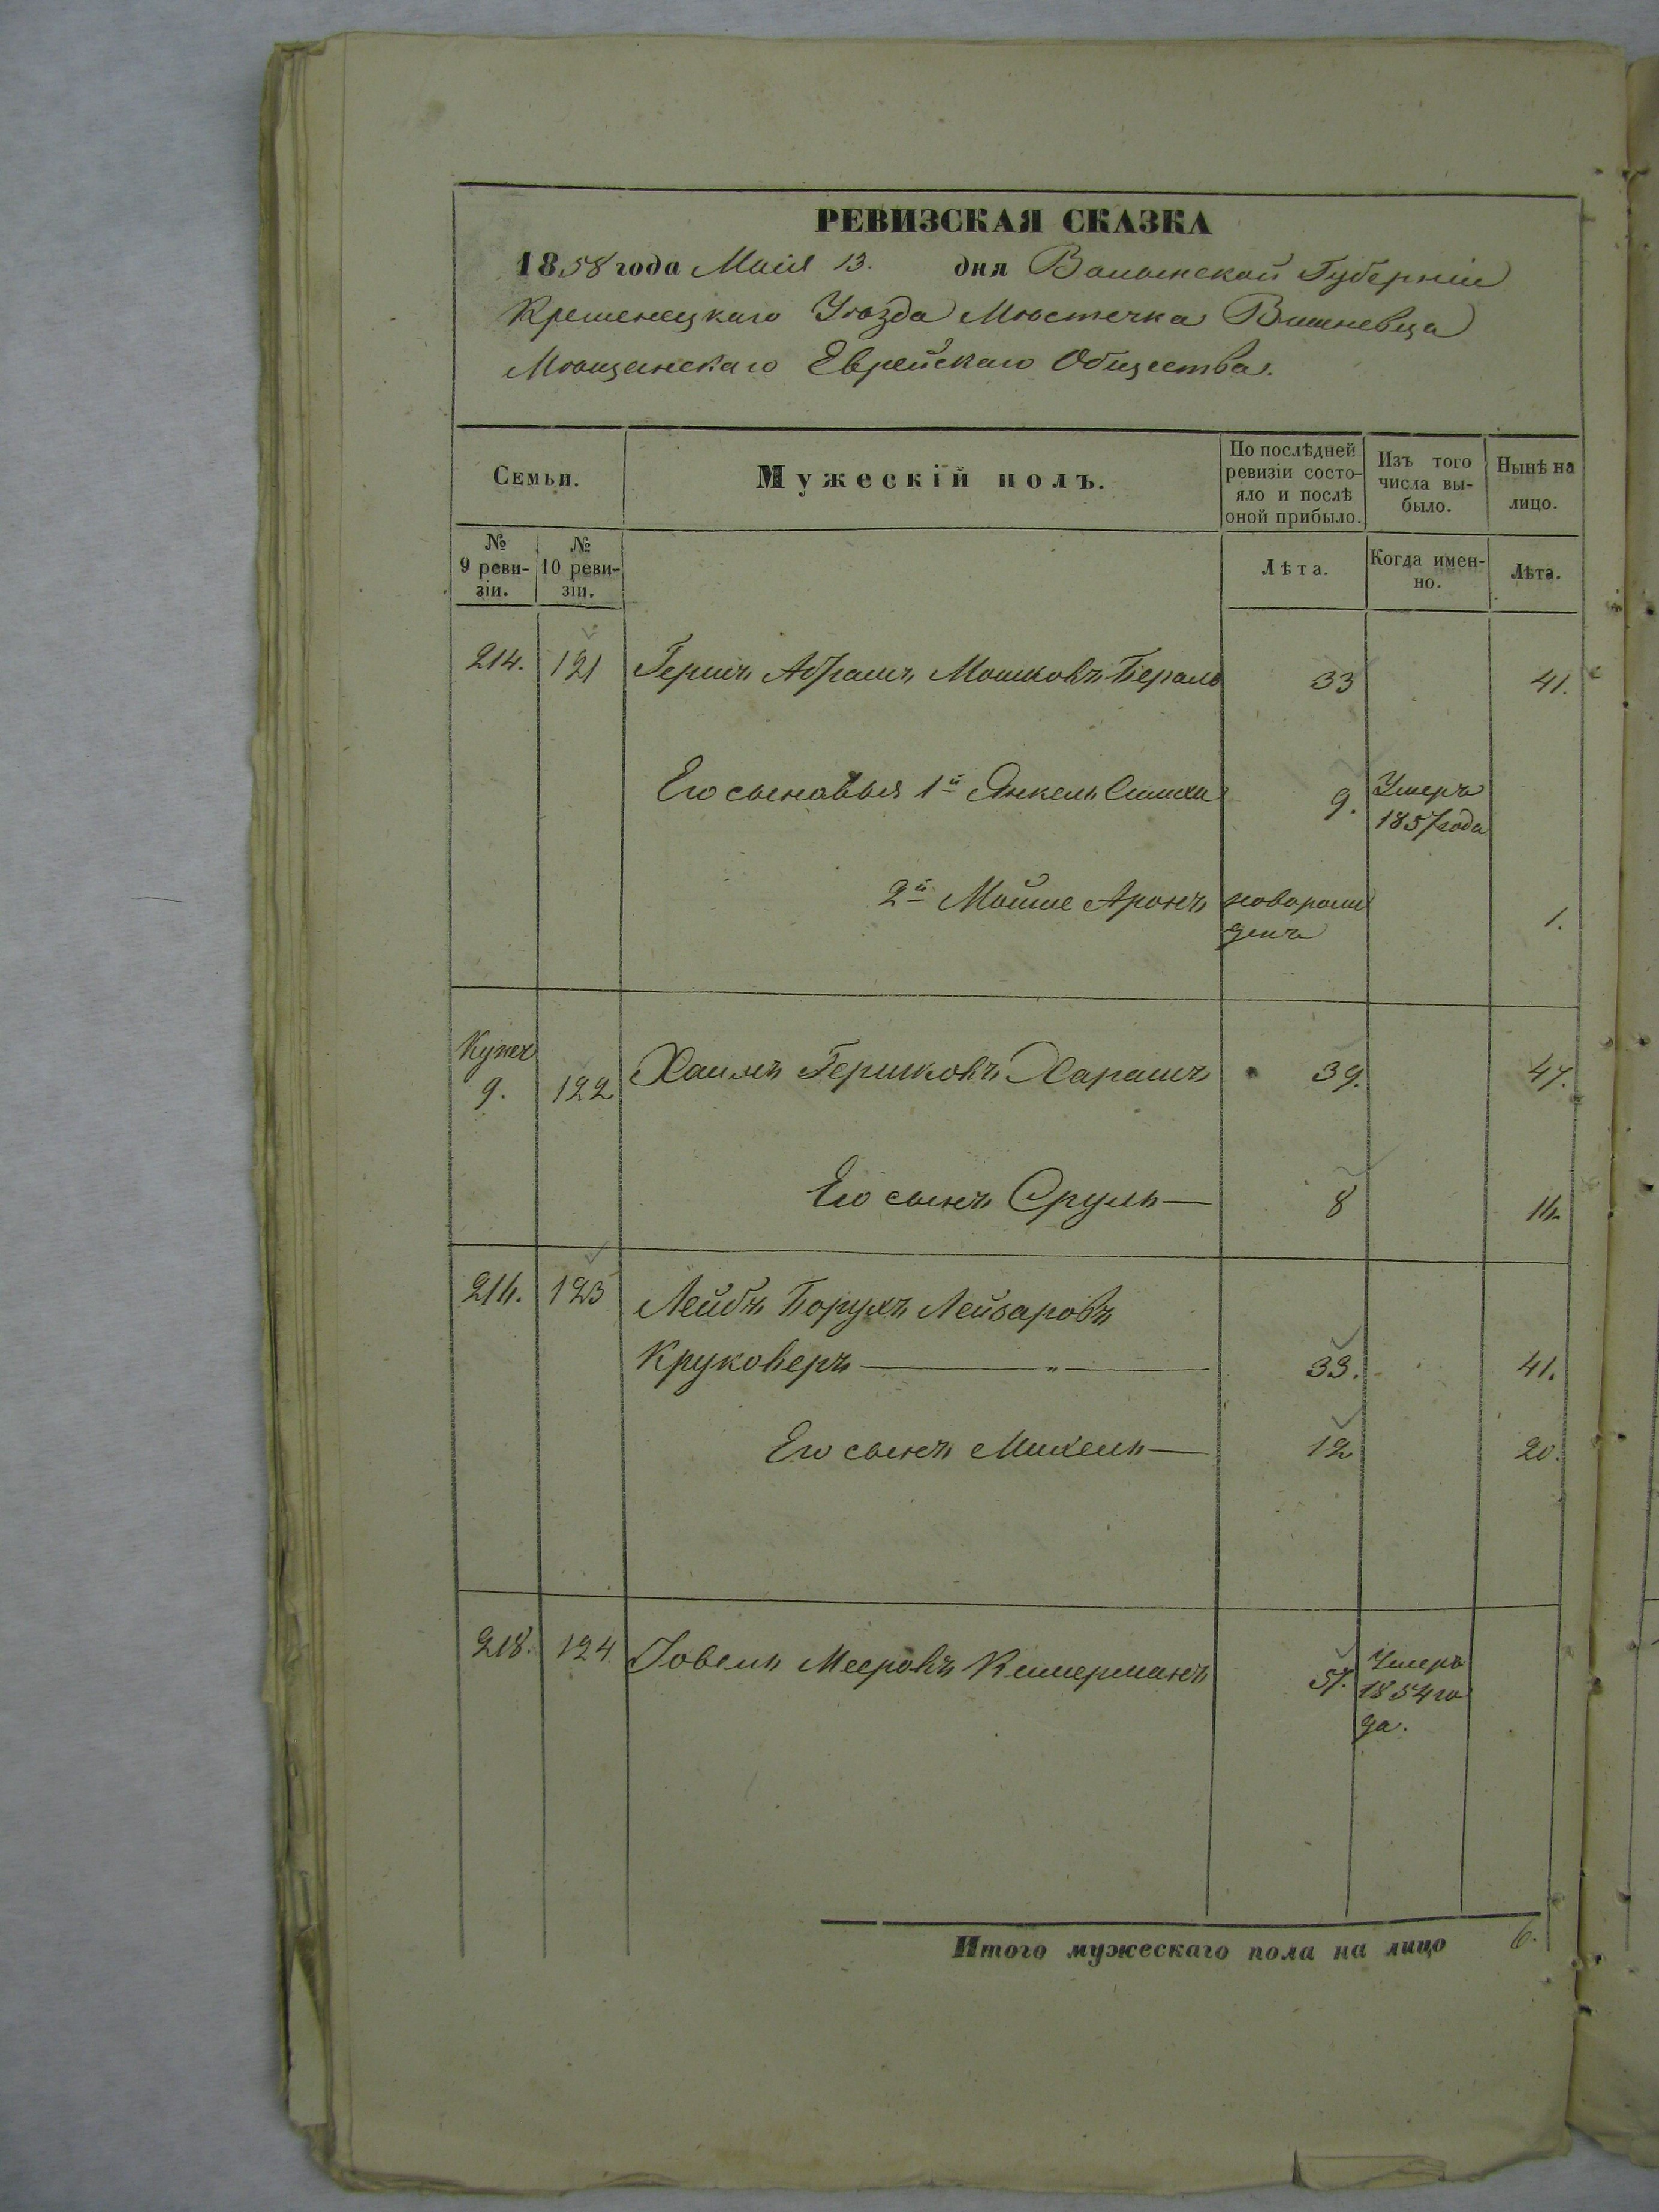 РЕВИЗСКАЯ СКАЗКА
1858 года Маія 13. дня Волынской Губерніи
Кременецкаго Уѣзда Мѣстечка Вишневца
Мѣщанскаго Еврейскаго Общества.
Семьи. Мужескій полъ. По послѣдней ревизіи состо-яло и послѣ оной прибыло. Изъ того числа вы-было. Нынѣ на лицо.
№ 9 реви-зіи. № 10 реви-зіи. Лѣта. Когда имен-но. Лѣта.
214. 121 Гершъ Абрамъ Мошковъ 33 41.
Его сыновья 1й Янкель Симха 9. Умеръ
1857 года
2й Мойше Аронъ новорож
денъ 1.
Купеч
9. 122 Хаимъ Гершковъ Харашъ 39. 47.
Его сынъ Сруль — 8 16.
216. 123 Лейбъ Борухъ Лейзаровъ
Круковеръ — „ — 33. 41.
Его сынъ Михель — 12 20.
218. 124 Іовель Мееровъ 57. Умеръ
1854 го
да.
Итого мужескаго пола на лицо 6.